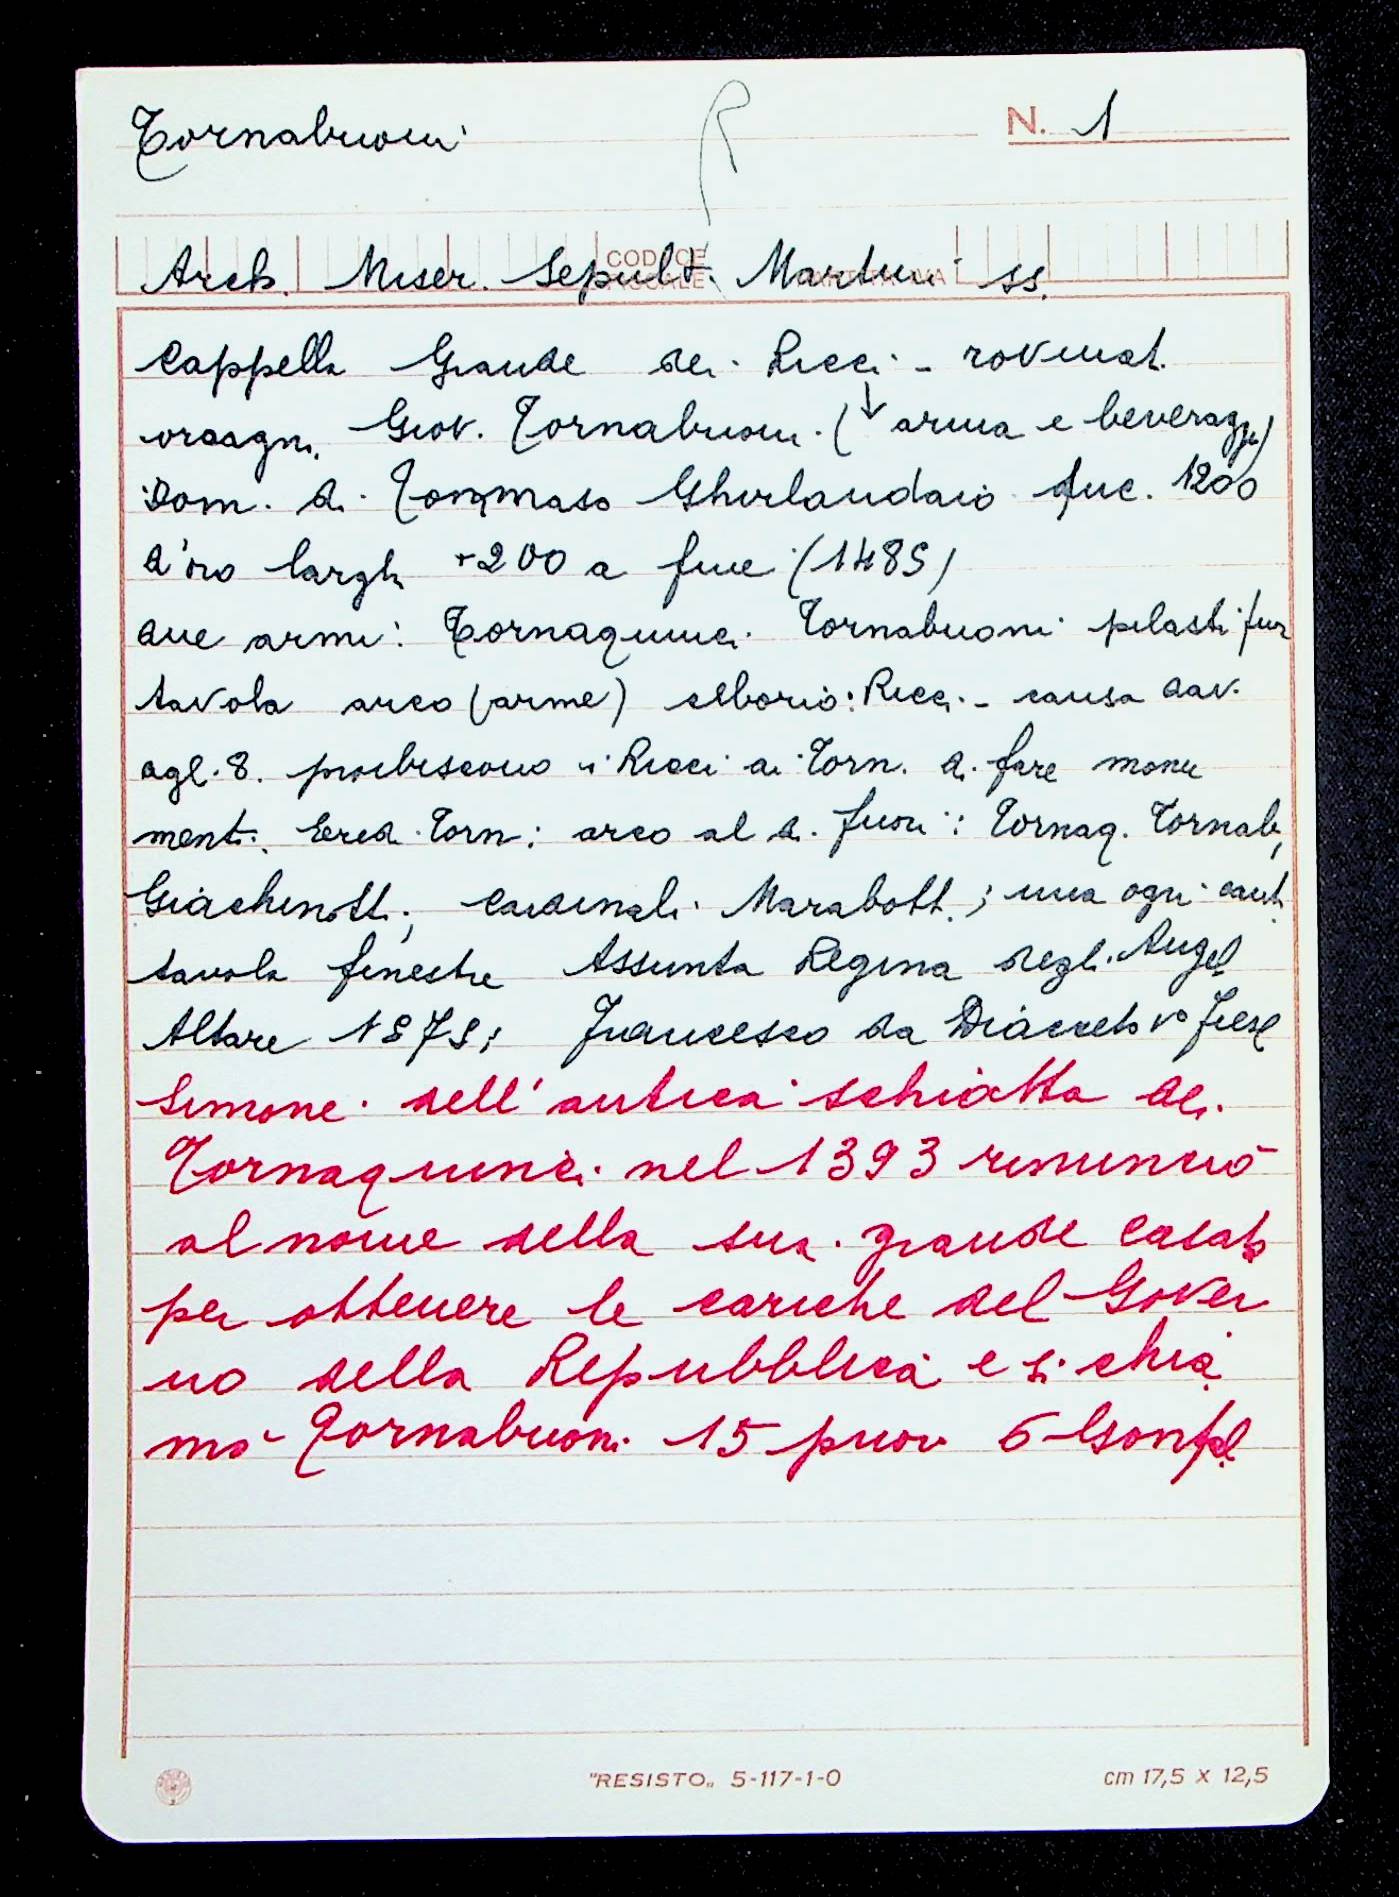 Tornabuoni
N. 1
CODICE
Arch. Miser. Sepult. Martini ss.
Cappella Grande dei Ricci - rovinat.
orcagn. Giov. Tornabuoni (↓ arma e beveragg)
Dom. di Tommaso Ghirlandaio duc. 1200
d'oro largh +200 a fine (1485)
due armi: Tornaquinci Tornabuoni pilastri fur
tavola arco (arme) ciborio: Ricci - causa dav.
agl. 8. proibiscono i Ricci ai Torn. di fare monu
menti. Ered. Torn: arco al di fuori: Tornaq. Tornab,
Giachinotti, Cardinali Marabott.; una ogni cant
tavola finestre Assunta Regina degli Angel
Altare 1878; Francesco da Diacceto vº Fiesl
Simone dell'antica schiatta dei
Tornaquinci nel 1393 rinunciò
al nome della sua grande casato
per ottenere le cariche del Gover
no della Repubblica e si chia
mò Tornabuoni 15 priori 6 Gonfal
"RESISTO„ 5-117-1-0
cm 17,5 x 12,5